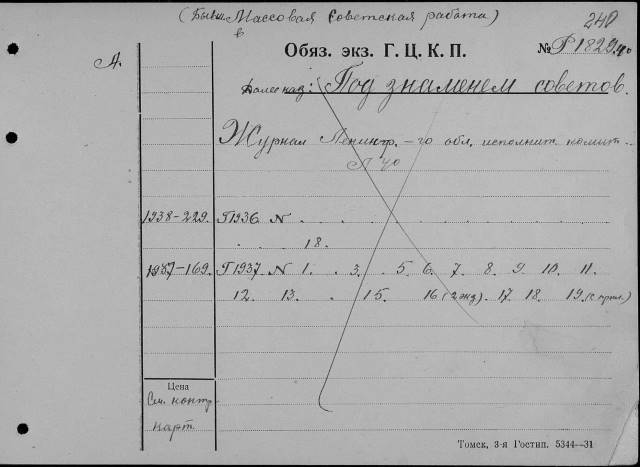 (Бывш Массовая Советская работа)
в
240
А.
Обяз. экз. Г. Ц. К. П.
№ Р1829.40
Далее наз: Под знаменем советов.
Журнал Ленингр.-го обл. исполнит. комит..
1938-229. Г1936 N . . . . . . . . . .
. . 18.
1937-169. Г1937. N 1. . 3. . 5. 6. 7. 8. 9. 10. 11.
12. 13. . 15. 16 (2 экз). 17. 18. 19. (с прил.)
Цена
См. контр
карт
Томск, 3-я Гостип. 5344—31